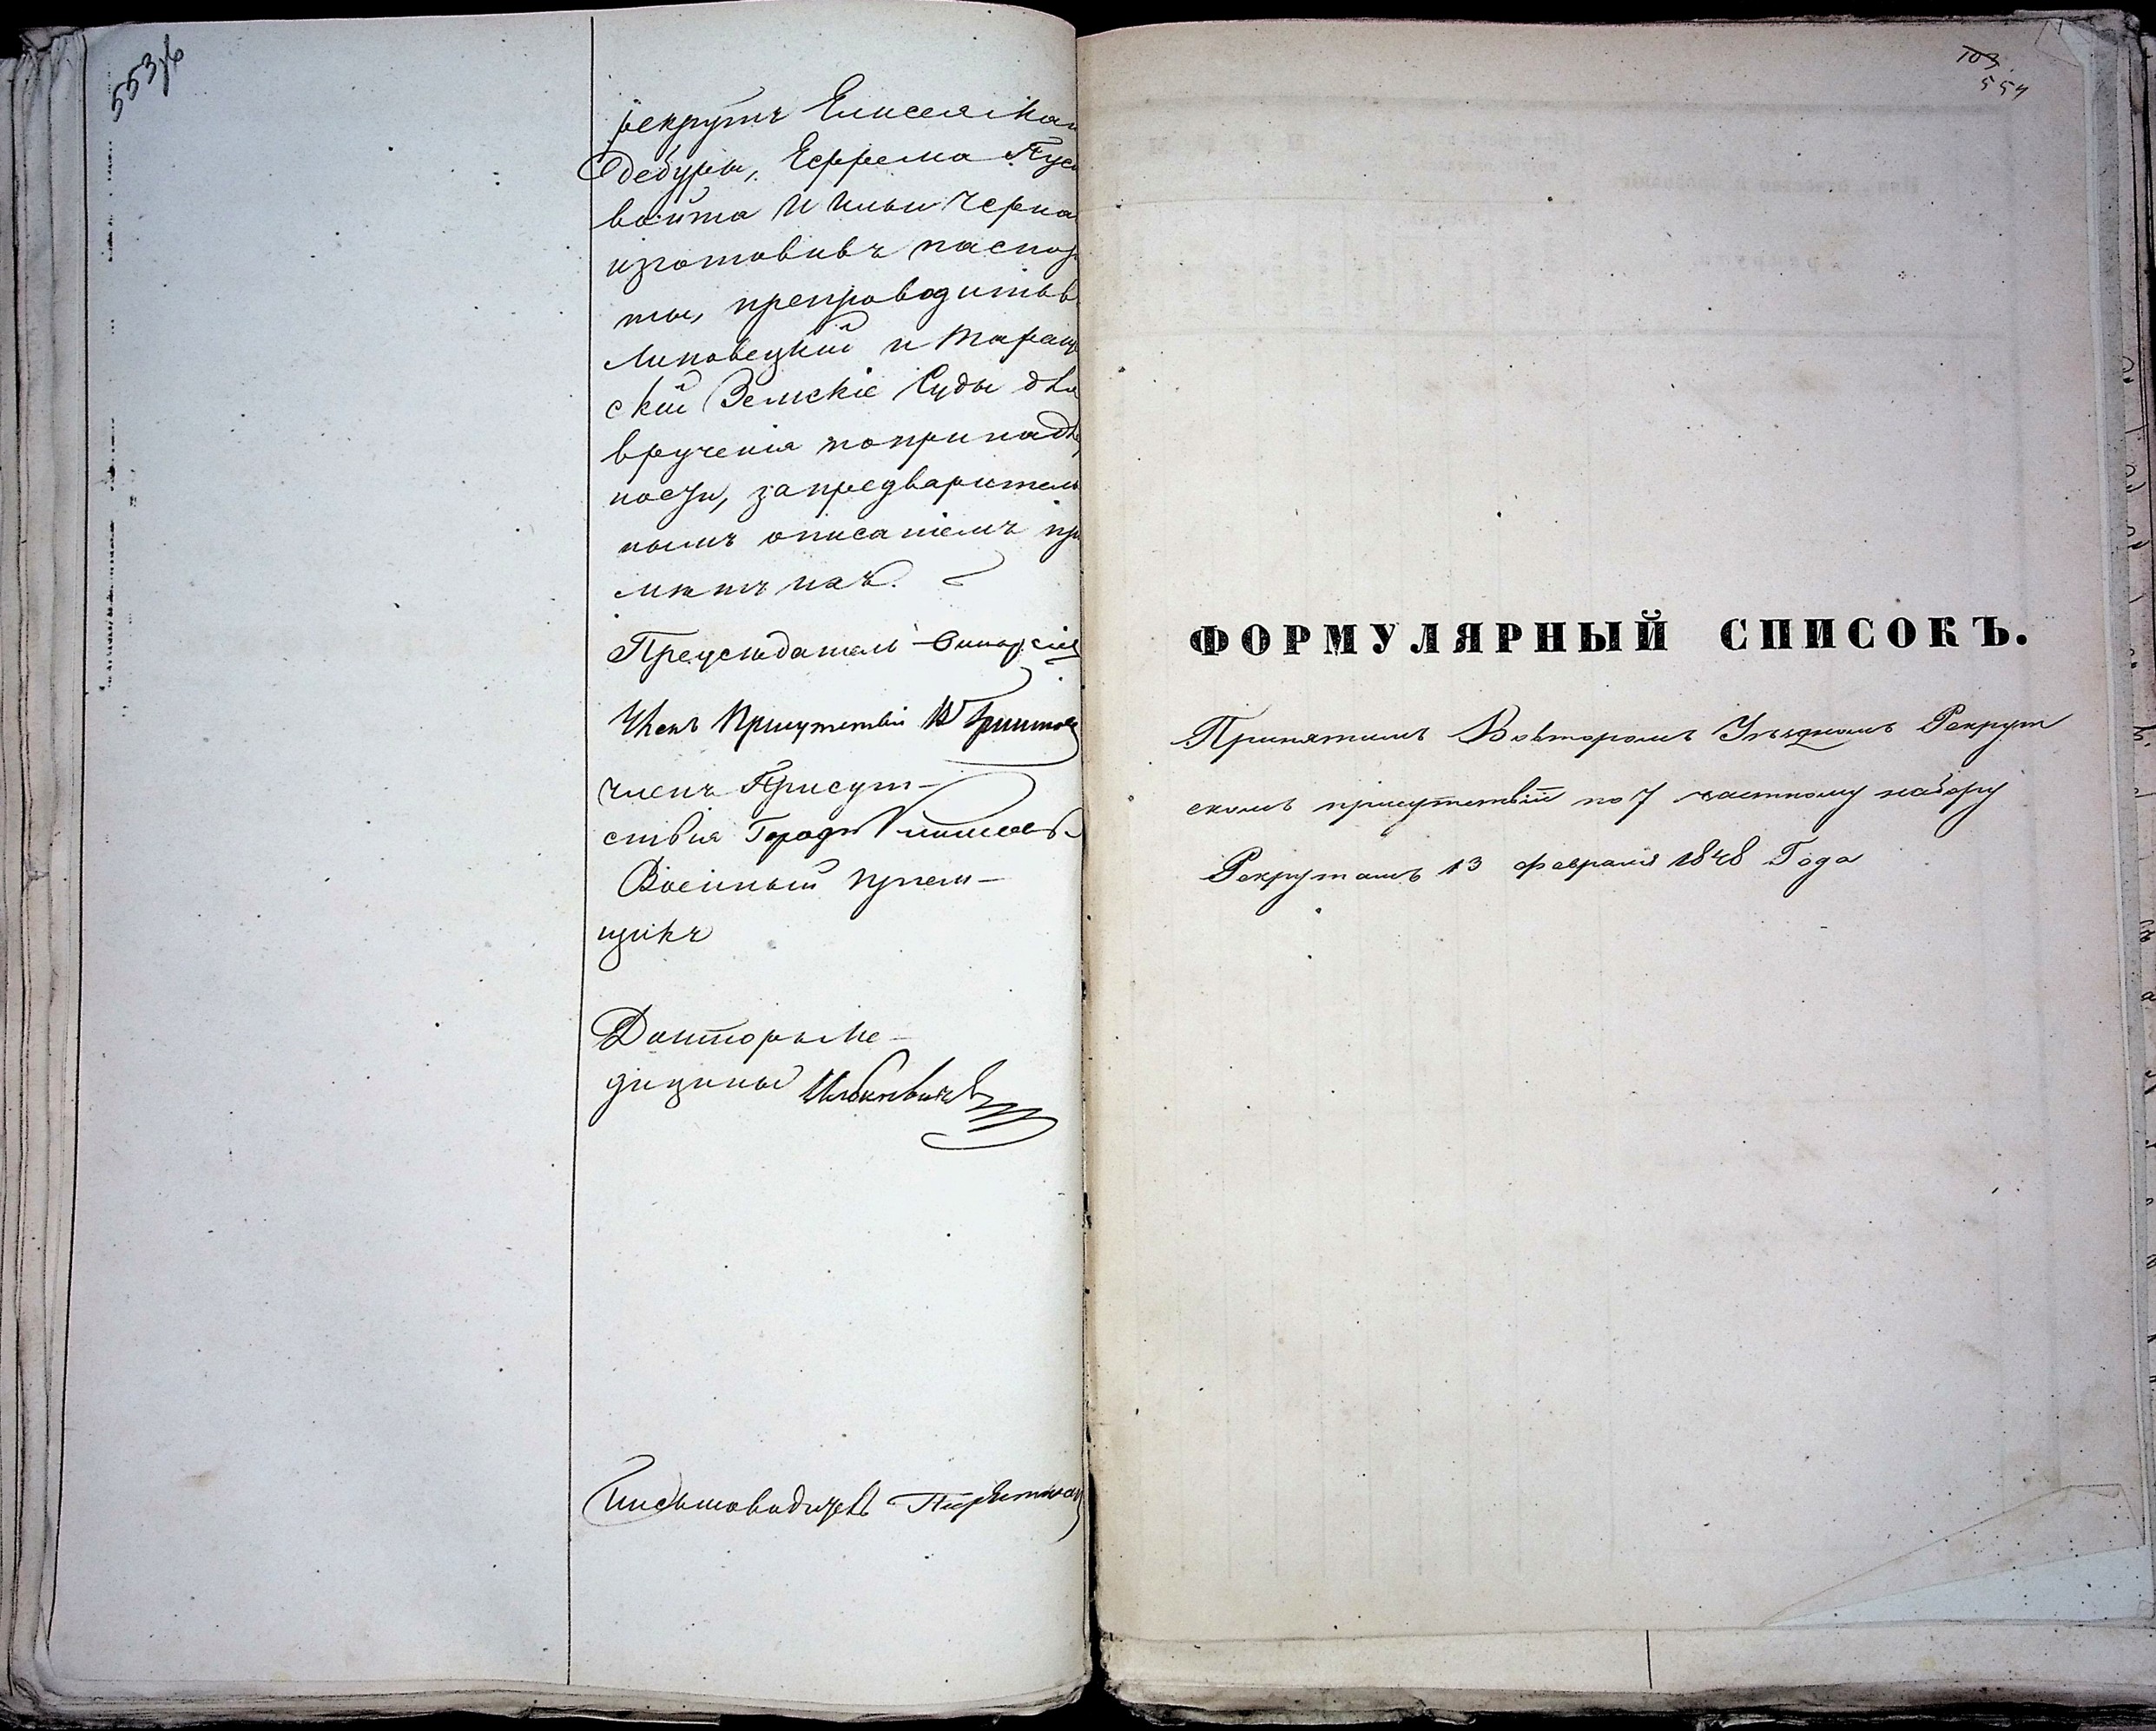 553 об
рекрутъ Елисея Мак
Дебуры, Ефрема Пус
войта и Ильи Черна
изготовивъ паспор
ты, препроводить в
Липовецкий и Тараща
ский Земскіе Суды для
врученія по принадле
ности, за предваритель
нымъ описаніемъ при
мѣтъ ихъ.
Предсѣдатель
Членъ Присутствія
членъ Присут-
ствія Город
Военный пріем-
щикъ
Докторъ Ме-
дицины
Письмоводитель
103
554
ФОРМУЛЯРНЫЙ СПИСОКЪ.
Принятымъ Во второмъ Уѣздномъ Рекрут
скомъ присутствіи по 7 частному набору
Рекрутамъ 13 февраля 1848 Года